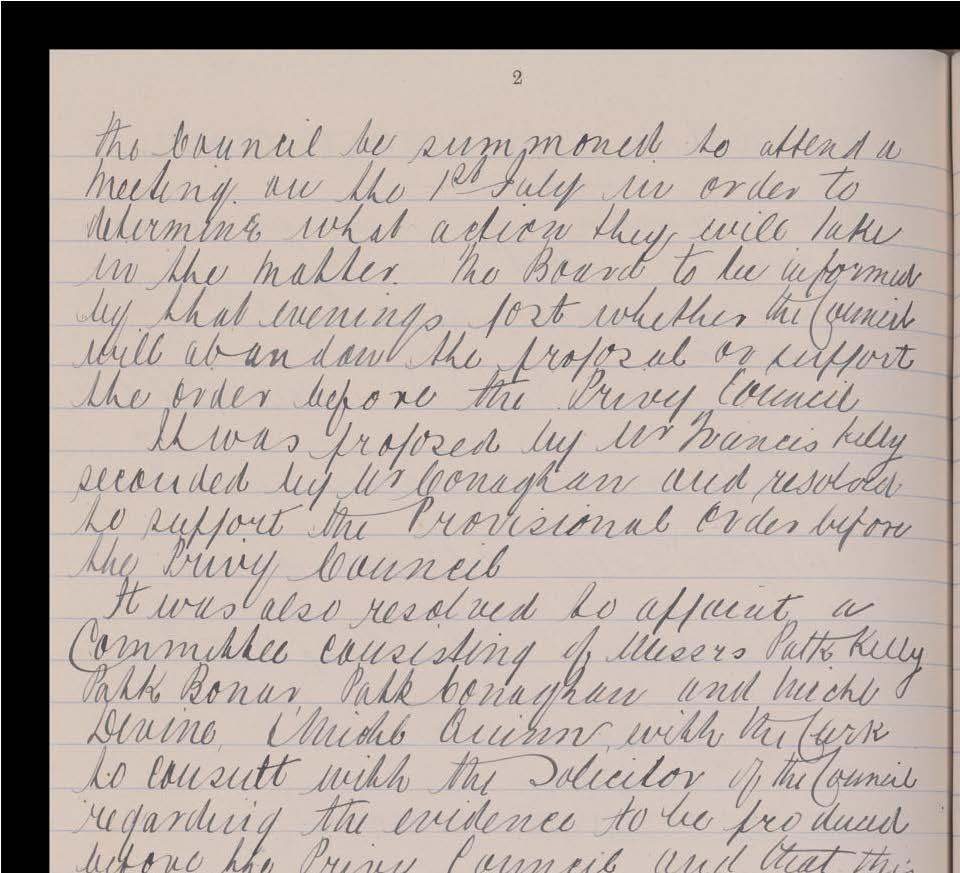 2
the Council be summoned to attend a
meeting on the 1st July in order to
determine what action they will take
in the matter. The Board to be informed
by that evenings post whether the Council
will abandon the proposal or support
the order before the Privy Council
It was proposed by Mr Francis Kelly
seconded by Mr Conaghan and resolved
to support the Provisional Order before
the Privy Council
It was also resolved to appoint a
Committee consisting of Messrs Patk Kelly
Patk Bonar, Patk Conaghan and Michl
Devine, Michl Quinn, with the Clerk
to consult with the Solicitor of the Council
regarding the evidence to be produced
before the Privy Council and that this